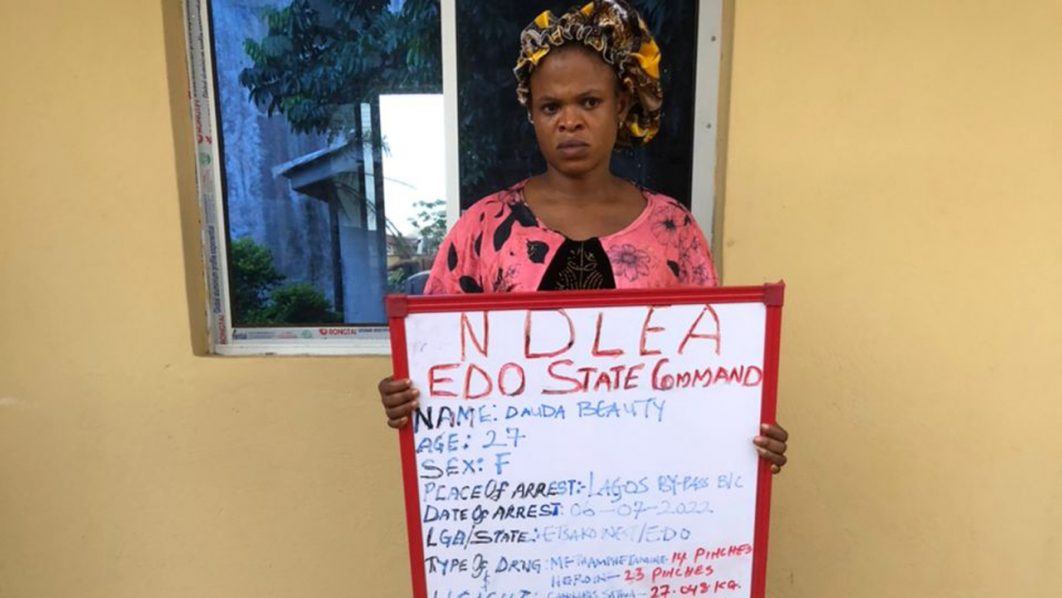 NDLEA
EDO STATE COMMAND
NAME: DAUDA BEAUTY
AGE: 27
SEX: F
PLACE OF ARREST:- LAGOS BY-PASS B/C
DATE OF ARREST: 06-07-2022
LGA/STATE: /EDO
TYPE OF DRUG: METHAMPHETAMINE 14 PINCHES
& HEROIN- 23 PINCHES
WEIGHT: CANNABIS SATIVA- 27.048 KG.
BONGTAI
BONGTAI